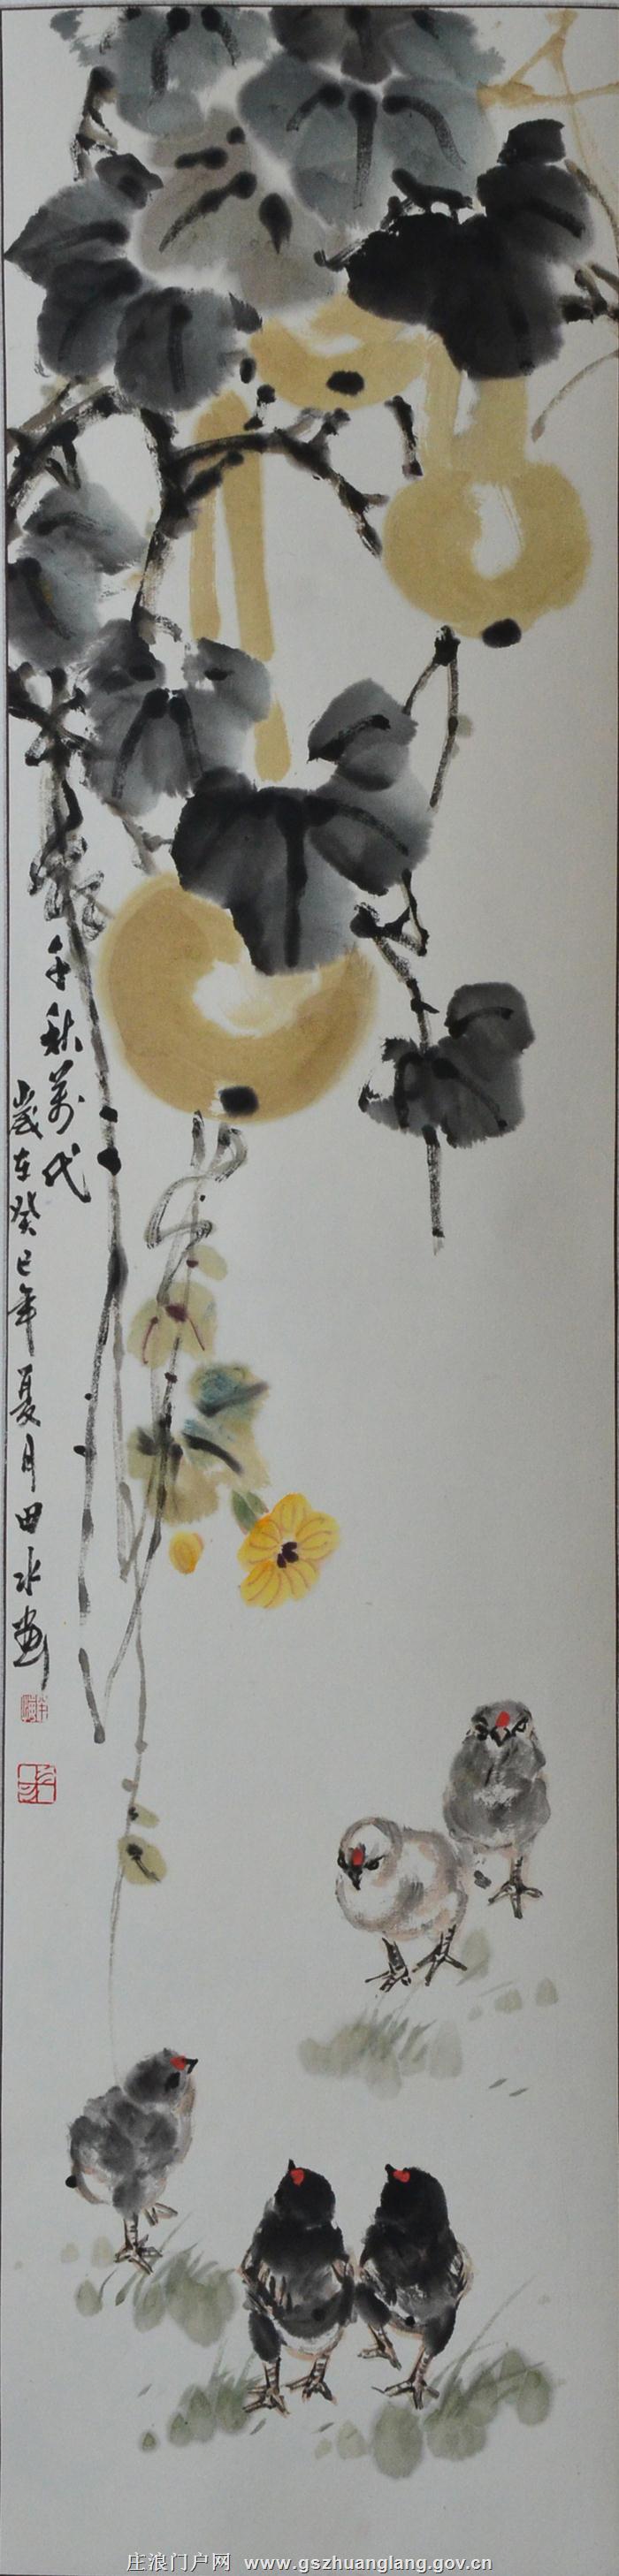 千秋萬代
歲在癸巳年夏月田水畫
庄浪门户网 www.gszhuanglang.gov.cn